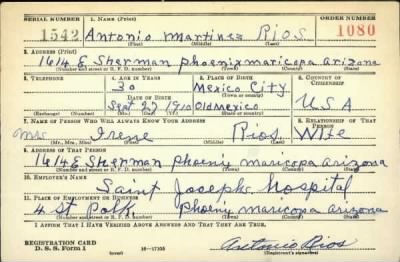 SERIAL NUMBER 1. NAME (Print) ORDER NUMBER
1542 Antonio Martinez Rios 1080
(First) (Middle) (Last)
2. ADDRESS (Print)
1614 E Sherman Phoenix maricopa arizona
(Number and street or R. F. D. number) (Town) (County) (State)
3. TELEPHONE 4. AGE IN YEARS 5. PLACE OF BIRTH 6. COUNTRY OF CITIZENSHIP
30 Mexico City
DATE OF BIRTH (Town or county)
Sept 27 1910 Old Mexico USA
(Exchange) (Number) (Mo.) (Day) (Yr.) (State or country)
7. NAME OF PERSON WHO WILL ALWAYS KNOW YOUR ADDRESS 8. RELATIONSHIP OF THAT PERSON
Mrs Irene Rios Wife
(Mr., Mrs., Miss) (First) (Middle) (Last)
9. ADDRESS OF THAT PERSON
1614 E Sherman Phoenix maricopa arizona
(Number and street or R. F. D. number) (Town) (County) (State)
10. EMPLOYER'S NAME
Saint Josephs Hospital
11. PLACE OF EMPLOYMENT OR BUSINESS
4 st Polk Phoenix maricopa arizona
(Number and street or R. F. D. number) (Town) (County) (State)
I AFFIRM THAT I HAVE VERIFIED ABOVE ANSWERS AND THAT THEY ARE TRUE.
REGISTRATION CARD
D. S. S. Form 1 (over) 16—17105 Antonio Rios
(Registrant's signature)